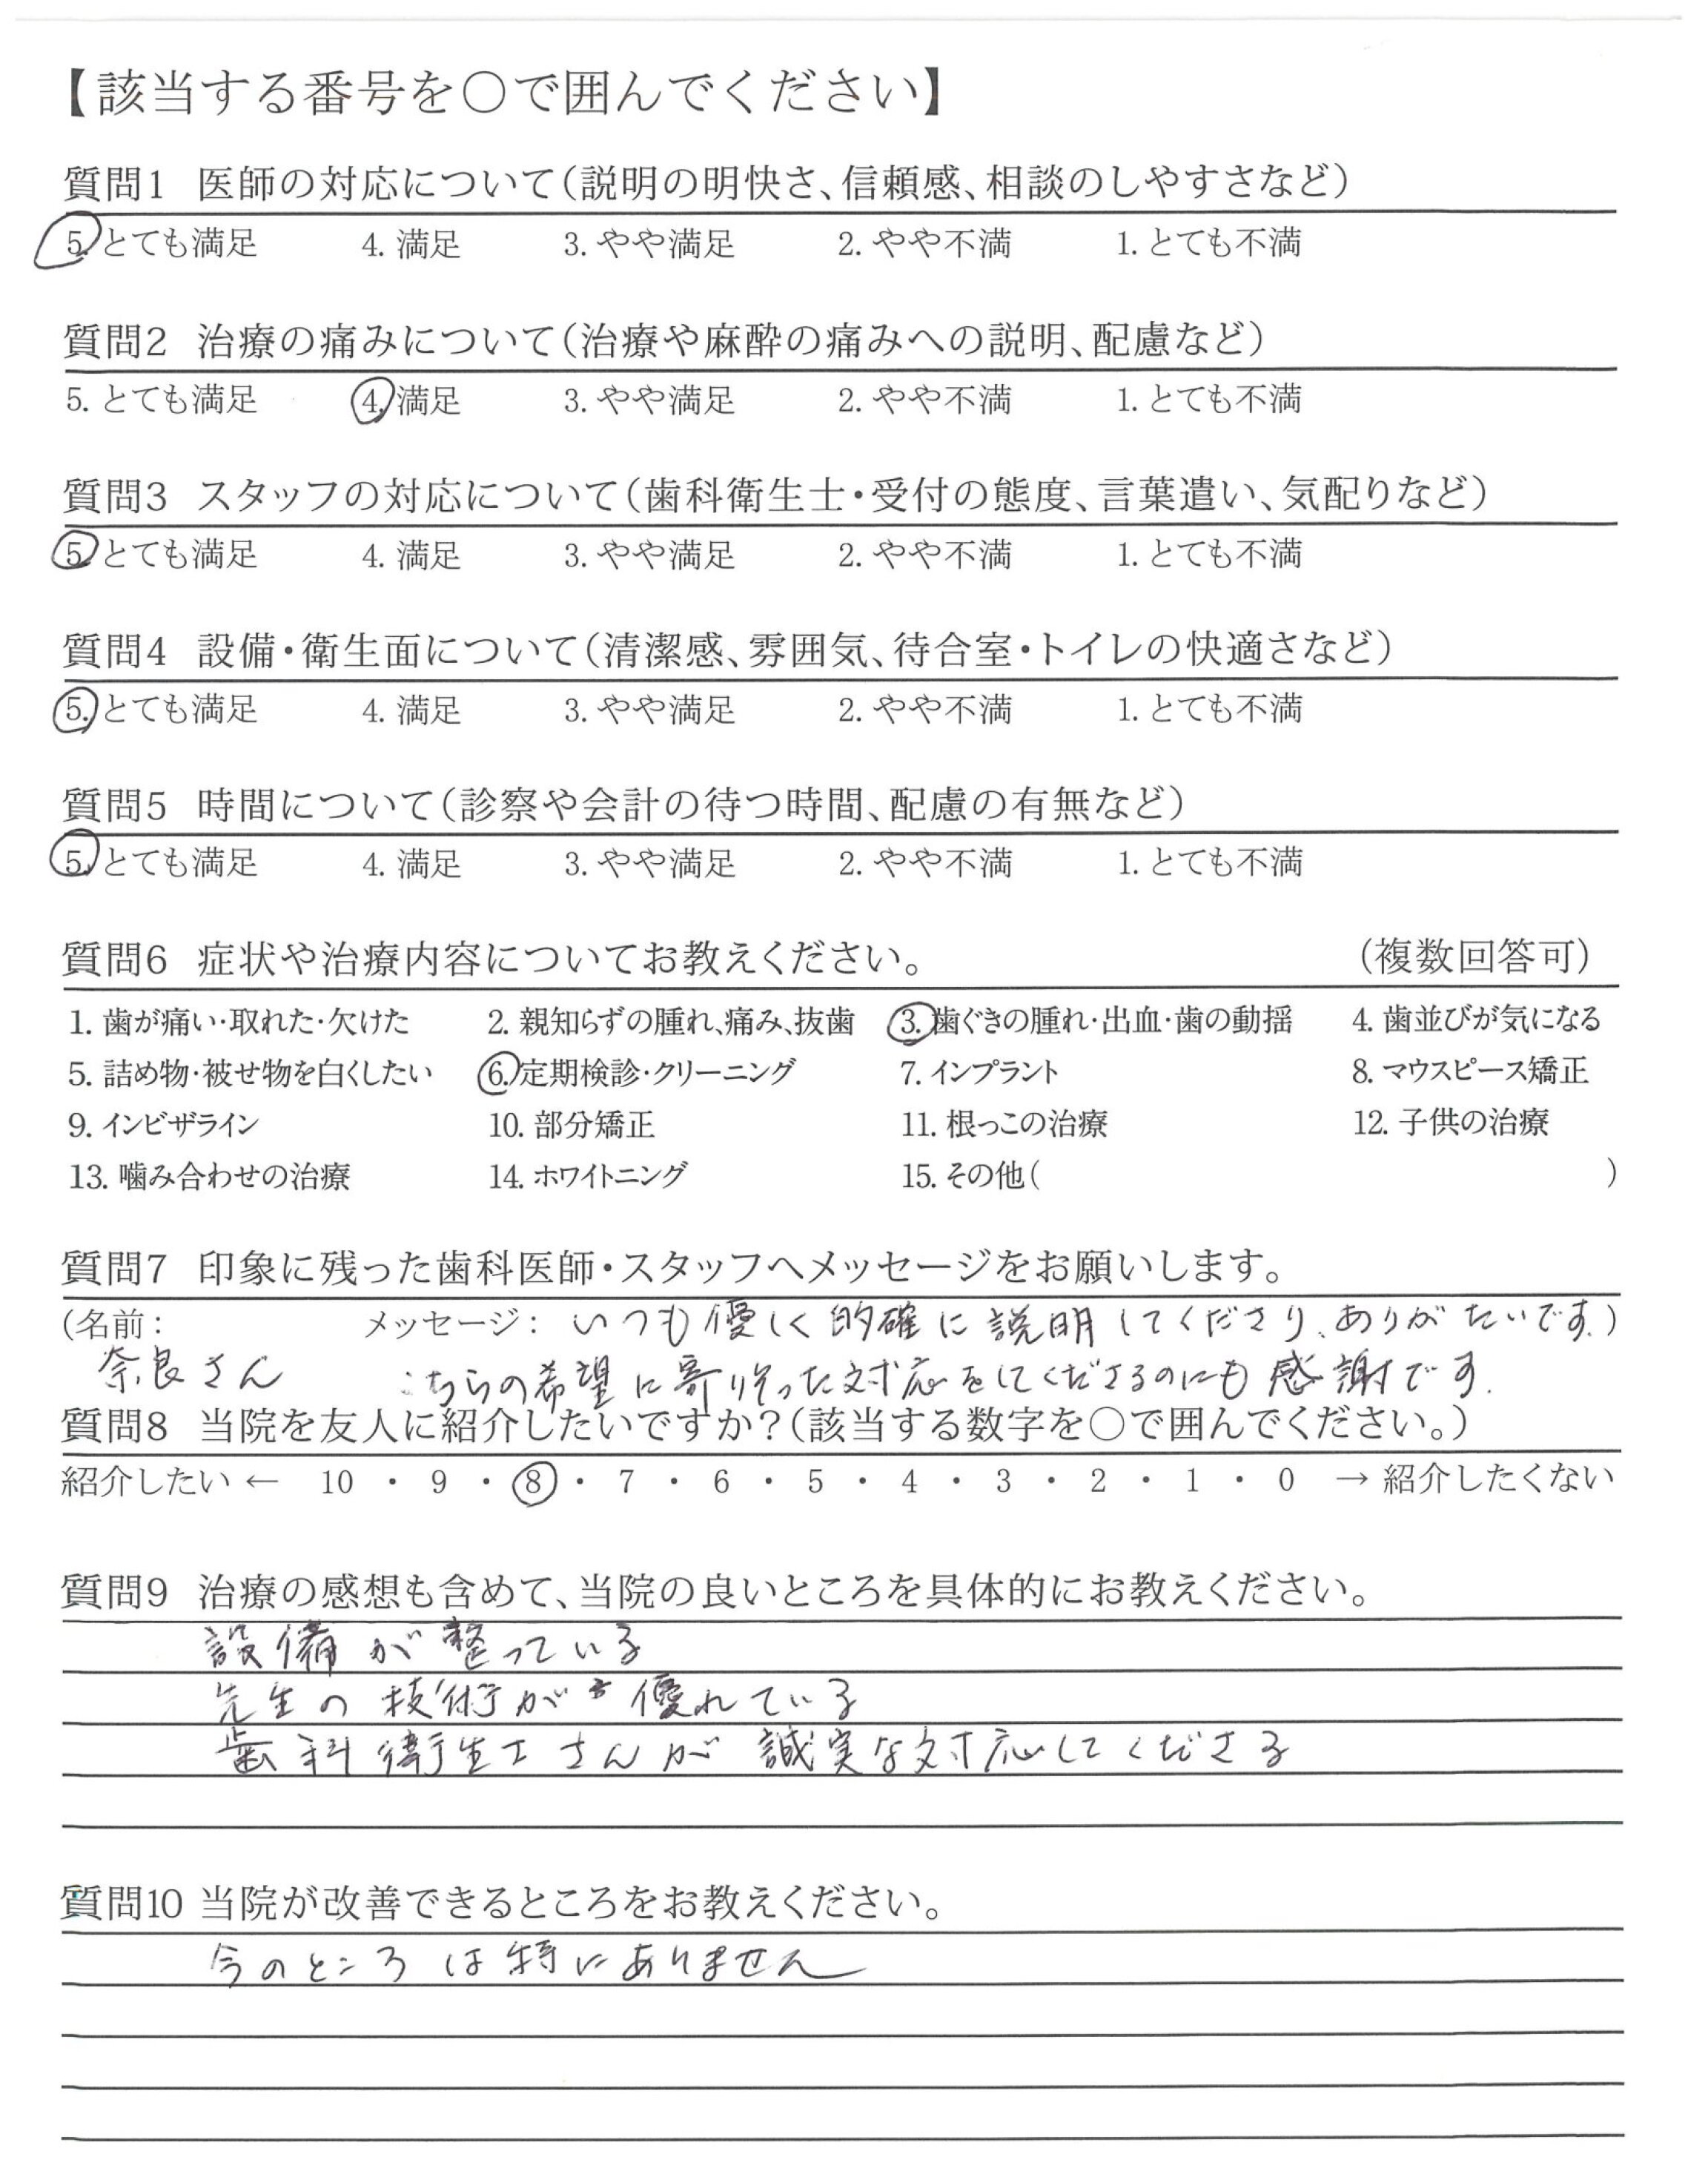 【該当する番号を○で囲んでください】
質問1 医師の対応について(説明の明快さ、信頼感、相談のしやすさなど)
5. とても満足 4. 満足 3. やや満足 2. やや不満 1. とても不満
質問2 治療の痛みについて(治療や麻酔の痛みへの説明、配慮など)
5. とても満足 4. 満足 3. やや満足 2. やや不満 1. とても不満
質問3 スタッフの対応について(歯科衛生士・受付の態度、言葉遣い、気配りなど)
5. とても満足 4. 満足 3. やや満足 2. やや不満 1. とても不満
質問4 設備・衛生面について(清潔感、雰囲気、待合室・トイレの快適さなど)
5. とても満足 4. 満足 3. やや満足 2. やや不満 1. とても不満
質問5 時間について(診察や会計の待つ時間、配慮の有無など)
5. とても満足 4. 満足 3. やや満足 2. やや不満 1. とても不満
質問6 症状や治療内容についてお教えください。 (複数回答可)
1. 歯が痛い・取れた・欠けた 2. 親知らずの腫れ、痛み、抜歯 3. 歯ぐきの腫れ・出血・歯の動揺 4. 歯並びが気になる
5. 詰め物・被せ物を白くしたい 6. 定期検診・クリーニング 7. インプラント 8. マウスピース矯正
9. インビザライン 10. 部分矯正 11. 根っこの治療 12. 子供の治療
13. 噛み合わせの治療 14. ホワイトニング 15. その他( )
質問7 印象に残った歯科医師・スタッフへメッセージをお願いします。
(名前: メッセージ: いつも優しく的確に説明してくださり、ありがたいです。)
奈良さん こちらの希望に寄り添った対応をしてくださるのにも感謝です。
質問8 当院を友人に紹介したいですか?(該当する数字を○で囲んでください。)
紹介したい ← 10 ・ 9 ・ 8 ・ 7 ・ 6 ・ 5 ・ 4 ・ 3 ・ 2 ・ 1 ・ 0 → 紹介したくない
質問9 治療の感想も含めて、当院の良いところを具体的にお教えください。
設備が整っている
先生の技術が優れている
歯科衛生士さんが誠実な対応してくださる
質問10 当院が改善できるところをお教えください。
今のところは特にありません